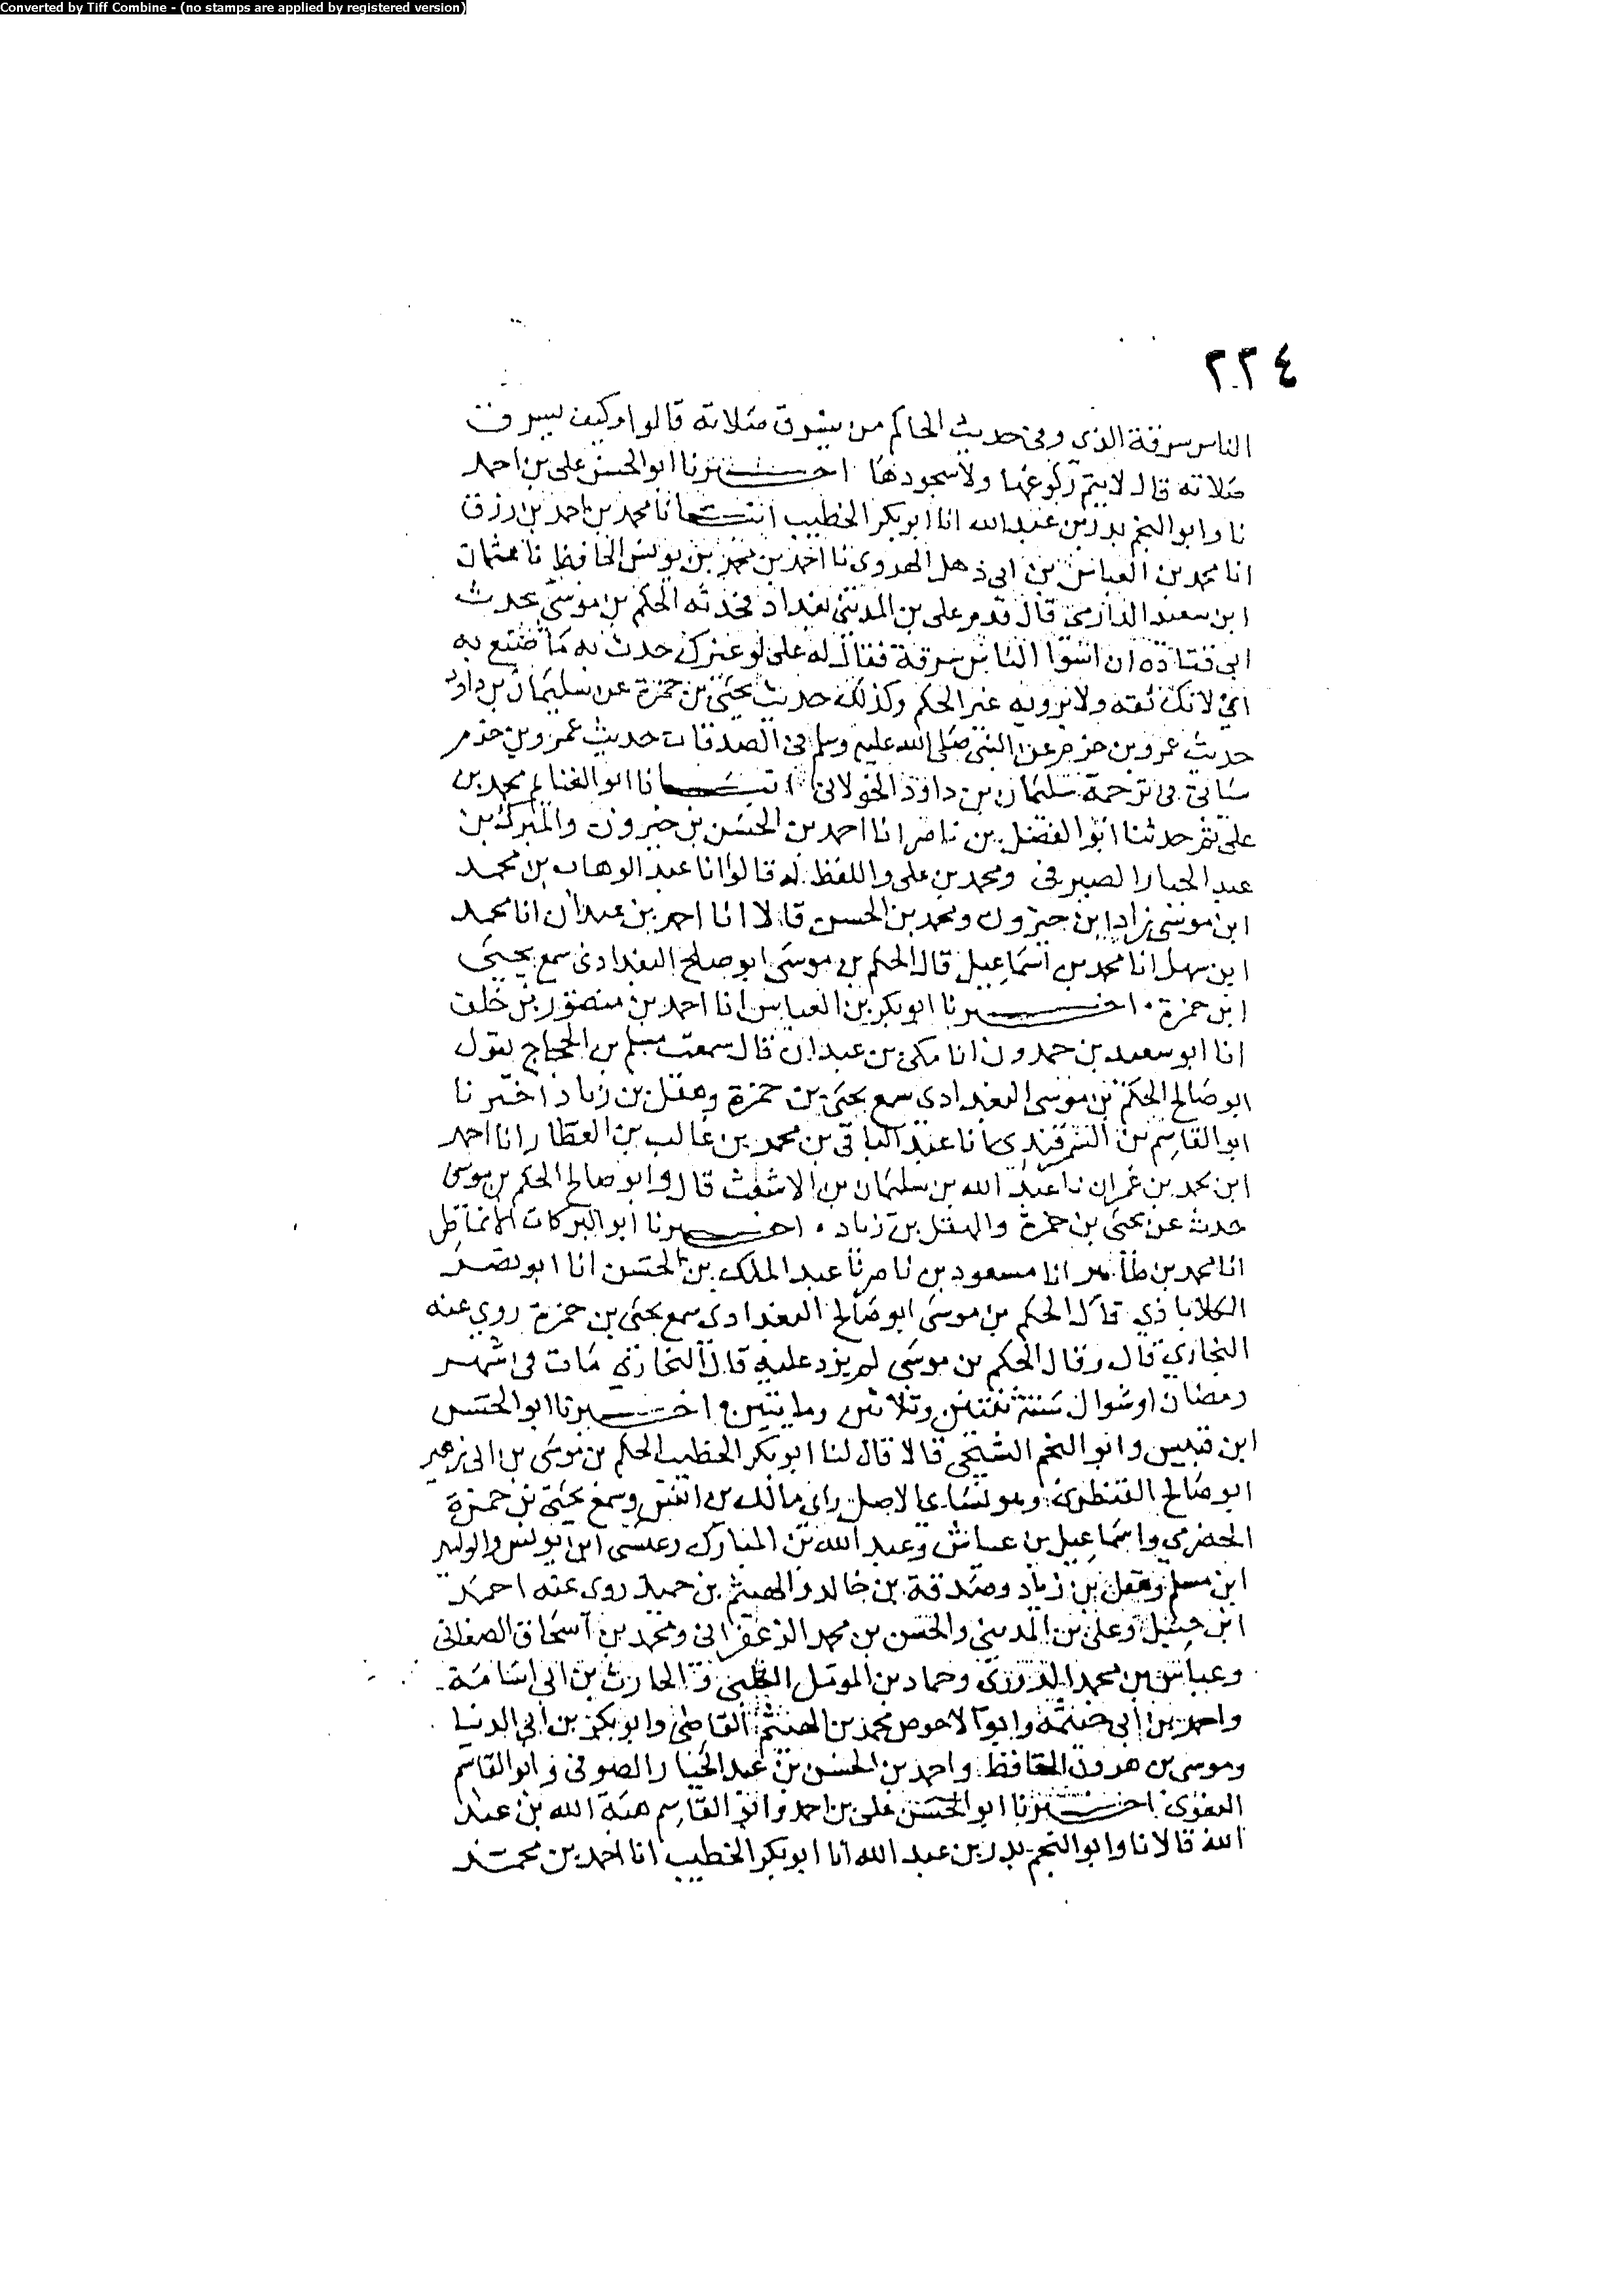 Converted by Tiff Combine - (no stamps are applied by registered version)
٢٢٤
الناس سرقة الذي وفي حديث الحاكم من يسرق صلاته قالوا وكيف يسرق
صلاته قال لا يتم ركوعها ولا سجودها اخبرنا ابو الحسن علي بن احمد
نا وابو النجم بدر بن عبد الله انا ابو بكر الخطيب انا محمد بن احمد بن رزق
انا محمد بن العباس بن ابي ذهل الهروي نا احمد بن محمد بن يونس الحافظ نا عثمان
ابن سعيد الدارمي قال قدم علي بن المديني بغداد فحدثه الحكم بن موسى بحديث
ابي قتادة ان اسوا الناس سرقة فقال له علي لو غيرك حدث به ما صنع به
اي لانك ثقه ولا يرويه غير الحكم وكذلك حديث يحيى بن حمزة عن سليمان بن داود
حديث عمرو بن حزم عن النبي صلى الله عليه وسلم في الصدقات حديث عمرو بن حزم
سياتي في ترجمة سليمان بن داود الخولاني انبانا ابو الغنايم محمد بن
علي ثم حدثنا ابو الفضل بن ناصر انا احمد بن الحسن بن خيرون والمبرك بن
عبد الجبار الصيرفي ومحمد بن علي واللفظ له قالوا انا عبد الوهاب بن محمد
ابن موسى زاد ابن خيرون ومحمد بن الحسن قالا انا احمد بن عبدان انا محمد
ابن سهل انا محمد بن اسماعيل قال الحكم بن موسى ابو صالح البغدادي سمع يحيى
ابن حمزة . اخبرنا ابو بكر بن العباس انا احمد بن منصور بن خلف
انا ابو سعيد بن حمدون انا مكي بن عبدان قال سمعت مسلم بن الحجاج يقول
ابو صالح الحكم بن موسى البغدادي سمع يحيى بن حمزة وهقل بن زياد اخبرنا
ابو القاسم بن السمرقندي انا عبد الباقي بن محمد بن غالب بن العطار انا احمد
ابن محمد بن عمران نا عبد الله بن سليمان بن الاشعث قال وابو صالح الحكم بن موسى
حدث عن يحيى بن حمزة والهقل بن زياد . اخبرنا ابو البركات الانماطي
انا محمد بن طاهر انا مسعود بن ناصر نا عبد الملك بن الحسن انا ابو نصر
الكلاباذي قال الحكم بن موسى ابو صالح البغدادي سمع يحيى بن حمزة روي عنه
البخاري قال وقال الحكم بن موسى لم يزد عليه قال البخاري مات في شهر
رمضان او شوال سنة ثنتين وثلاثين ومايتين . اخبرنا ابو الحسن
ابن قبيس وابو النجم الشيحي قالا قال لنا ابو بكر الخطيب الحكم بن موسى بن ابي زهير
ابو صالح القنطري وهو نسايي الاصل راى مالك بن انس وسمع يحيى بن حمزة
الحضرمي واسماعيل بن عياش وعبد الله بن المبارك وعيسى ابن يونس والوليد
ابن مسلم وهقل بن زياد وصدقة بن خالد والهيثم بن حميد روى عنه احمد
ابن حنبل وعلي بن المديني والحسن بن محمد الزعفراني ومحمد بن اسحاق الصغاني
وعباس بن محمد الدوري وحماد بن المومل الكلبي والحارث بن ابي اسامة
واحمد بن ابي خيثمه وابو الاحوص محمد بن الهيثم القاضي وابو بكر بن ابي الدنيا
وموسى بن هرون الحافظ واحمد بن الحسن بن عبد الجبار الصوفي وابو القاسم
البغوي اخبرنا ابو الحسن علي بن احمد وابو القاسم هبة الله بن عبد
الله قالا نا وابو النجم بدر بن عبد الله انا ابو بكر الخطيب انا احمد بن محمد